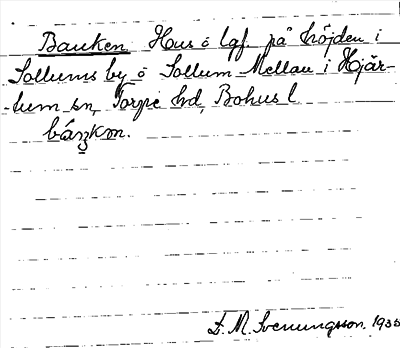 Bauken Hus ö lgf. på höjden i
Sollums by ö Sollum Mellan i Hjär-
-tum sn, Torpe hd, Bohus l
F. M. Svenungsson. 1935